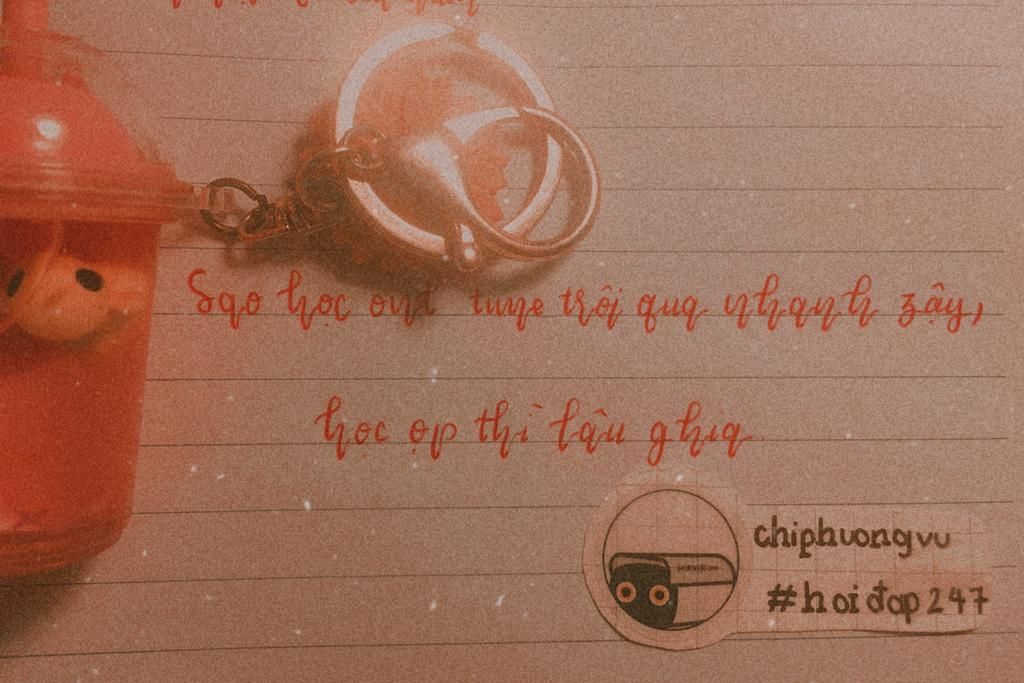 Sao học onl tune trôi qua nhanh zậy,
học ọp thì lâu ghia
HIKVISION
chiphuongvu
#hoi đap 247